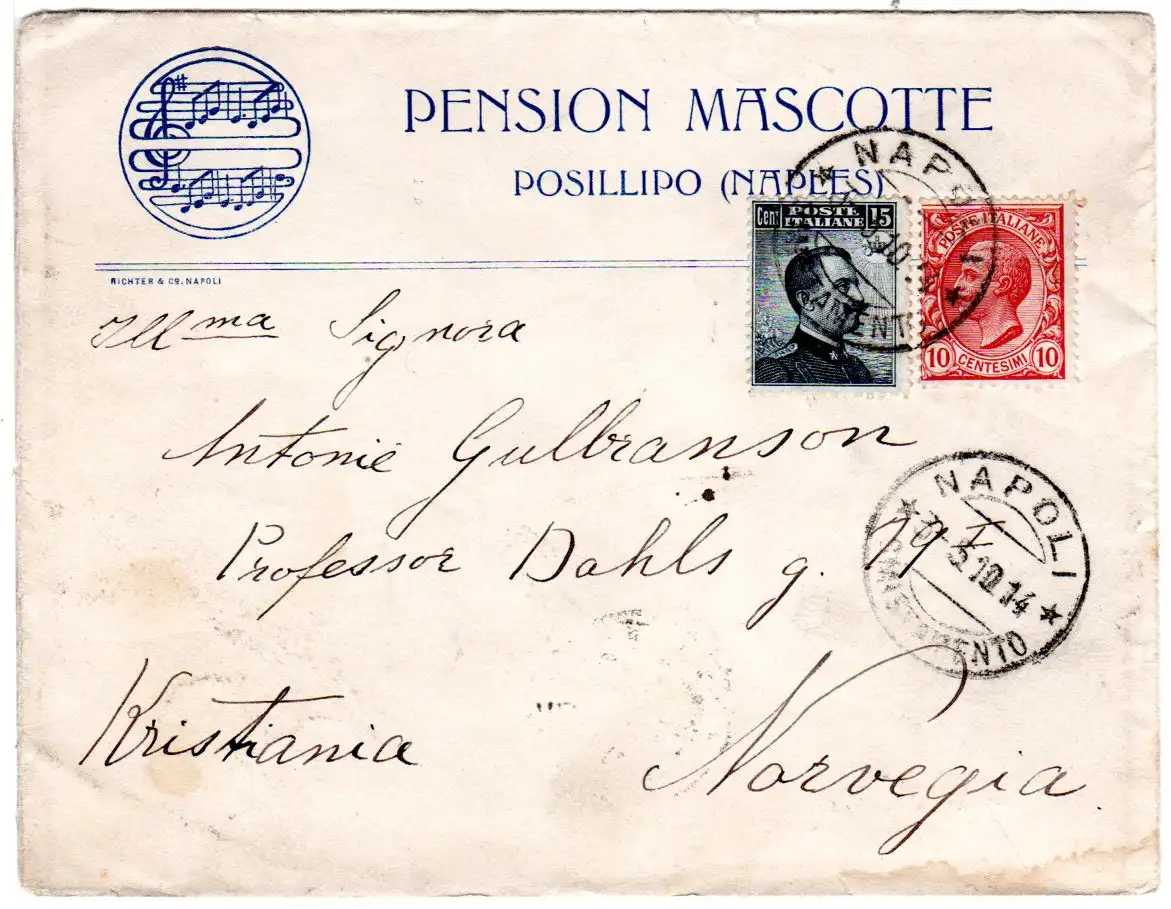 PENSION MASCOTTE
POSILLIPO (NAPLES)
RICHTER & Co. NAPOLI
Cent POSTE ITALIANE 15
POSTE ITALIANE
10 CENTESIMI 10
NAPOLI
Ill ma Signora
Antonie Gulbranson
Professor Dahls g. 19 I
Kristiania
Norvegia
NAPOLI
5.10.14